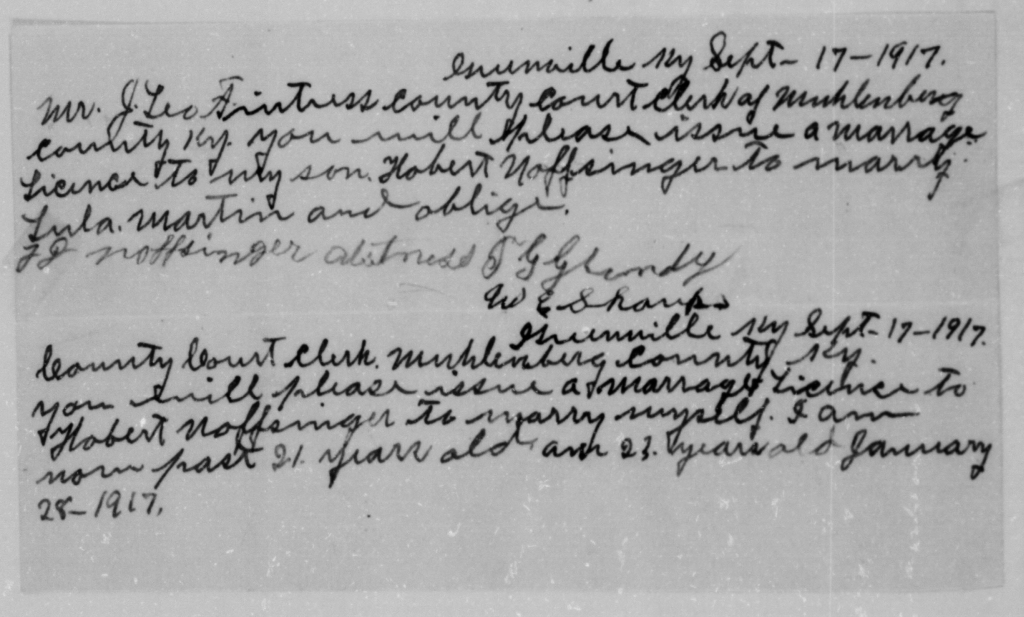 Greenville Ky Sept- 17-1917.
Mr. J. Leo Fintress county court clerk of Muhlenberg
county Ky. you will please issue a marrage
Licence to my son. Hobert Noffsinger to marry
Lula. Martin and oblige.
Noffsinger T G
W E
Greenville Ky Sept-17-1917.
County Court Clerk. Muhlenberg county Ky.
you will please issue a marrage Licence to
Hobert Noffsinger to marry myself. I am
now past 21. years old am 23. years old January
28-1917.